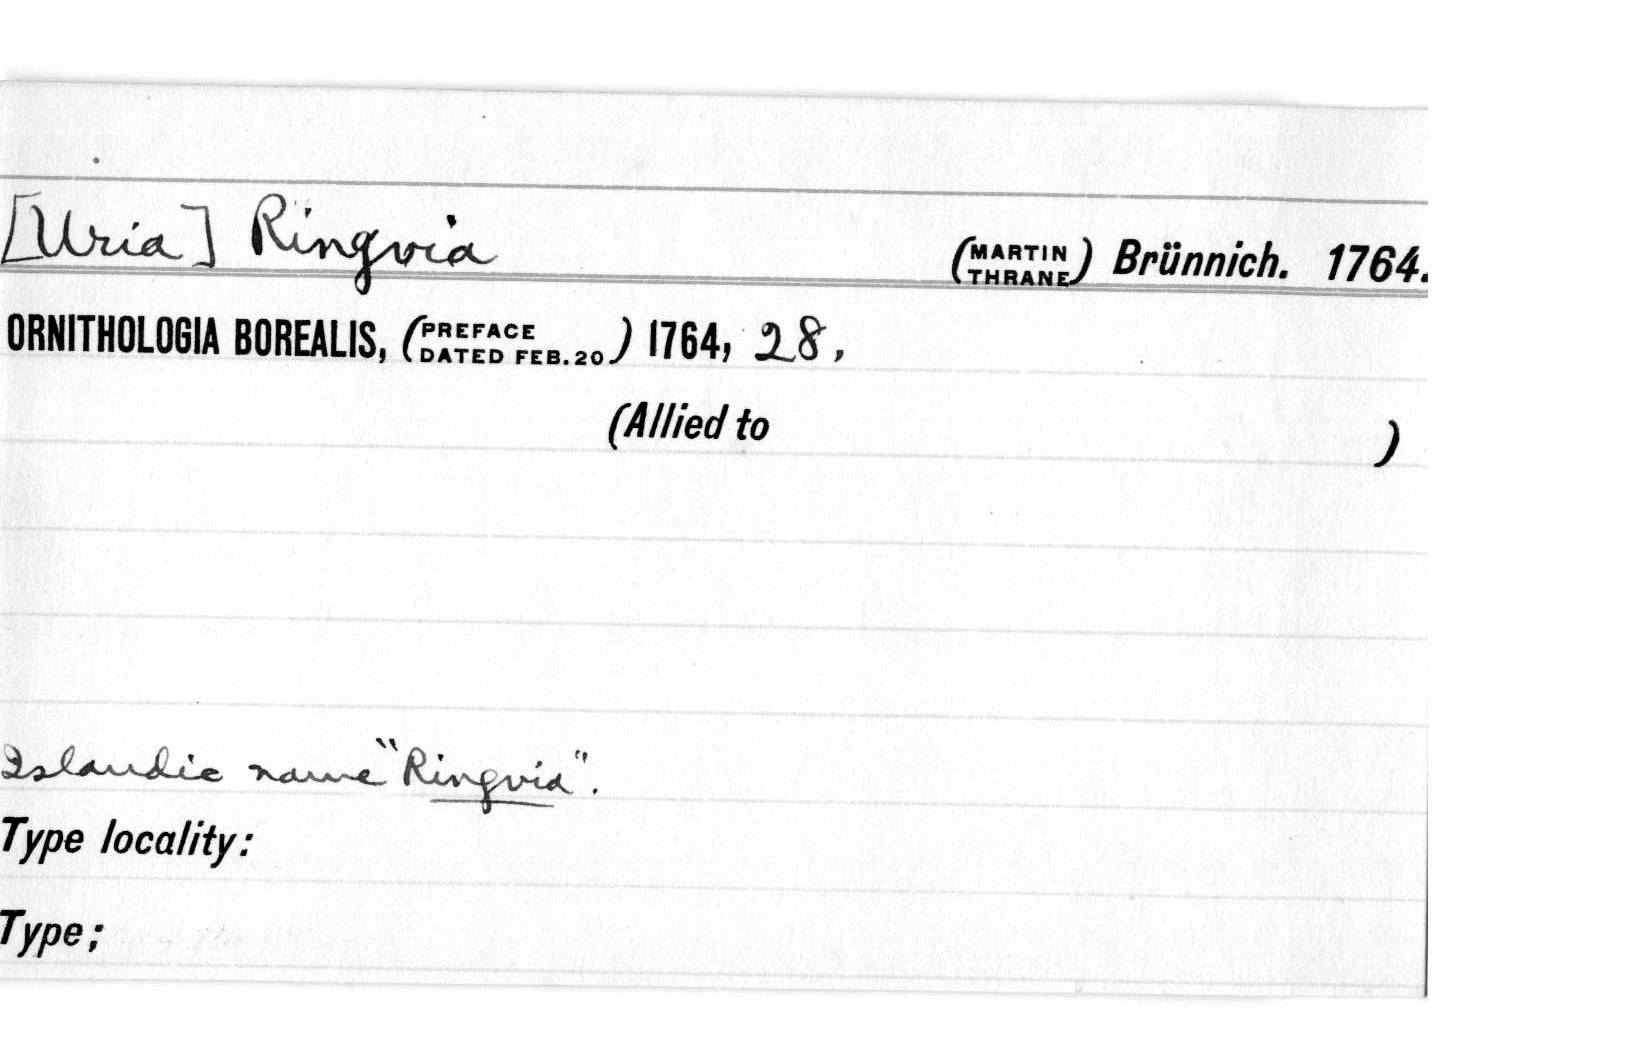 [Uria] Ringvia (MARTIN THRANE) Brünnich. 1764.
ORNITHOLOGIA BOREALIS, (PREFACE DATED FEB. 20) 1764, 28,
(Allied to )
Islandic name "Ringvia".
Type locality:
Type;